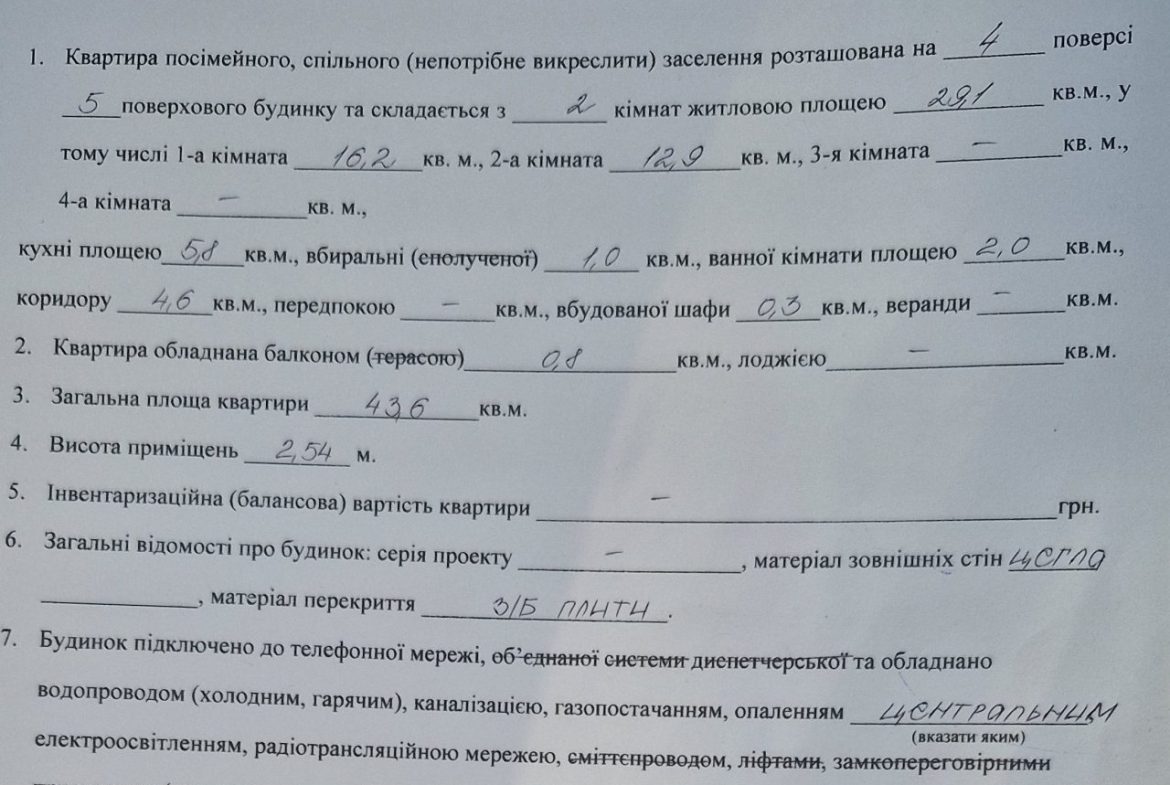 1. Квартира посімейного, спільного (непотрібне викреслити) заселення розташована на 4 поверсі
5 поверхового будинку та складається з 2 кімнат житловою площею 29,1 кв.м., у
тому числі 1-а кімната 16,2 кв. м., 2-а кімната 12,9 кв. м., 3-я кімната — кв. м.,
4-а кімната — кв. м.,
кухні площею 5,8 кв.м., вбиральні (сполученої) 1,0 кв.м., ванної кімнати площею 2,0 кв.м.,
коридору 4,6 кв.м., передпокою — кв.м., вбудованої шафи 0,3 кв.м., веранди — кв.м.
2. Квартира обладнана балконом (терасою) 0,8 кв.м., лоджією — кв.м.
3. Загальна площа квартири 43,6 кв.м.
4. Висота приміщень 2,54 м.
5. Інвентаризаційна (балансова) вартість квартири — грн.
6. Загальні відомості про будинок: серія проекту — , матеріал зовнішніх стін цегла
, матеріал перекриття з/б плити .
7. Будинок підключено до телефонної мережі, об’єднаної системи диспетчерської та обладнано
водопроводом (холодним, гарячим), каналізацією, газопостачанням, опаленням центральним
(вказати яким)
електроосвітленням, радіотрансляційною мережею, сміттєпроводом, ліфтами, замкопереговірними